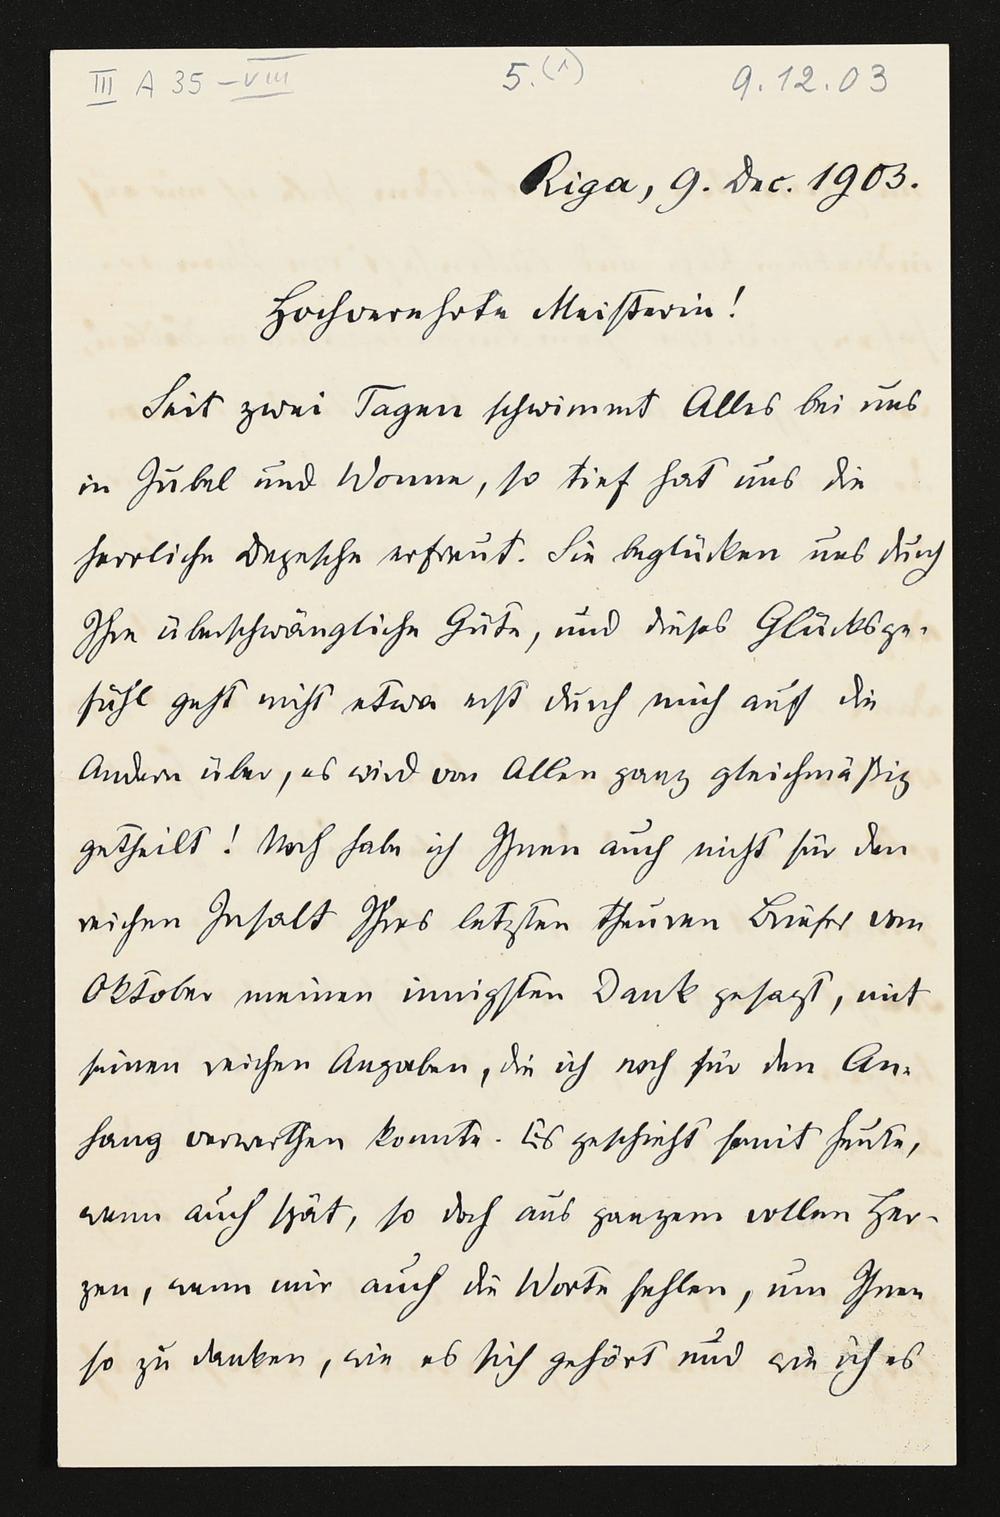 III A 35 - VIII
5.(1)
9.12.03
Riga, 9. Dec. 1903.
Hochverehrte Meisterin!
Seit zwei Tagen schwimmt Alles bei uns
in Jubel und Wonne, so tief hat uns die
herrliche Depesche erfreut. Sie beglücken uns durch
Ihre überschwängliche Güte, und dieses Glücksge-
fühl geht nicht etwa erst durch mich auf die
Andern über, es wird von Allen ganz gleichmäßig
getheilt! Noch habe ich Ihnen auch nicht für den
reichen Inhalt Ihres letzten theuren Briefes vom
Oktober meinen innigsten Dank gesagt, mit
seinen reichen Angaben, die ich noch für den An-
hang verwerthen konnte. Es geschieht somit heute,
wenn auch spät, so doch aus ganzem vollen Her-
zen, wenn mir auch die Worte fehlen, um Ihnen
so zu danken, wie es sich gehört und wie ich es